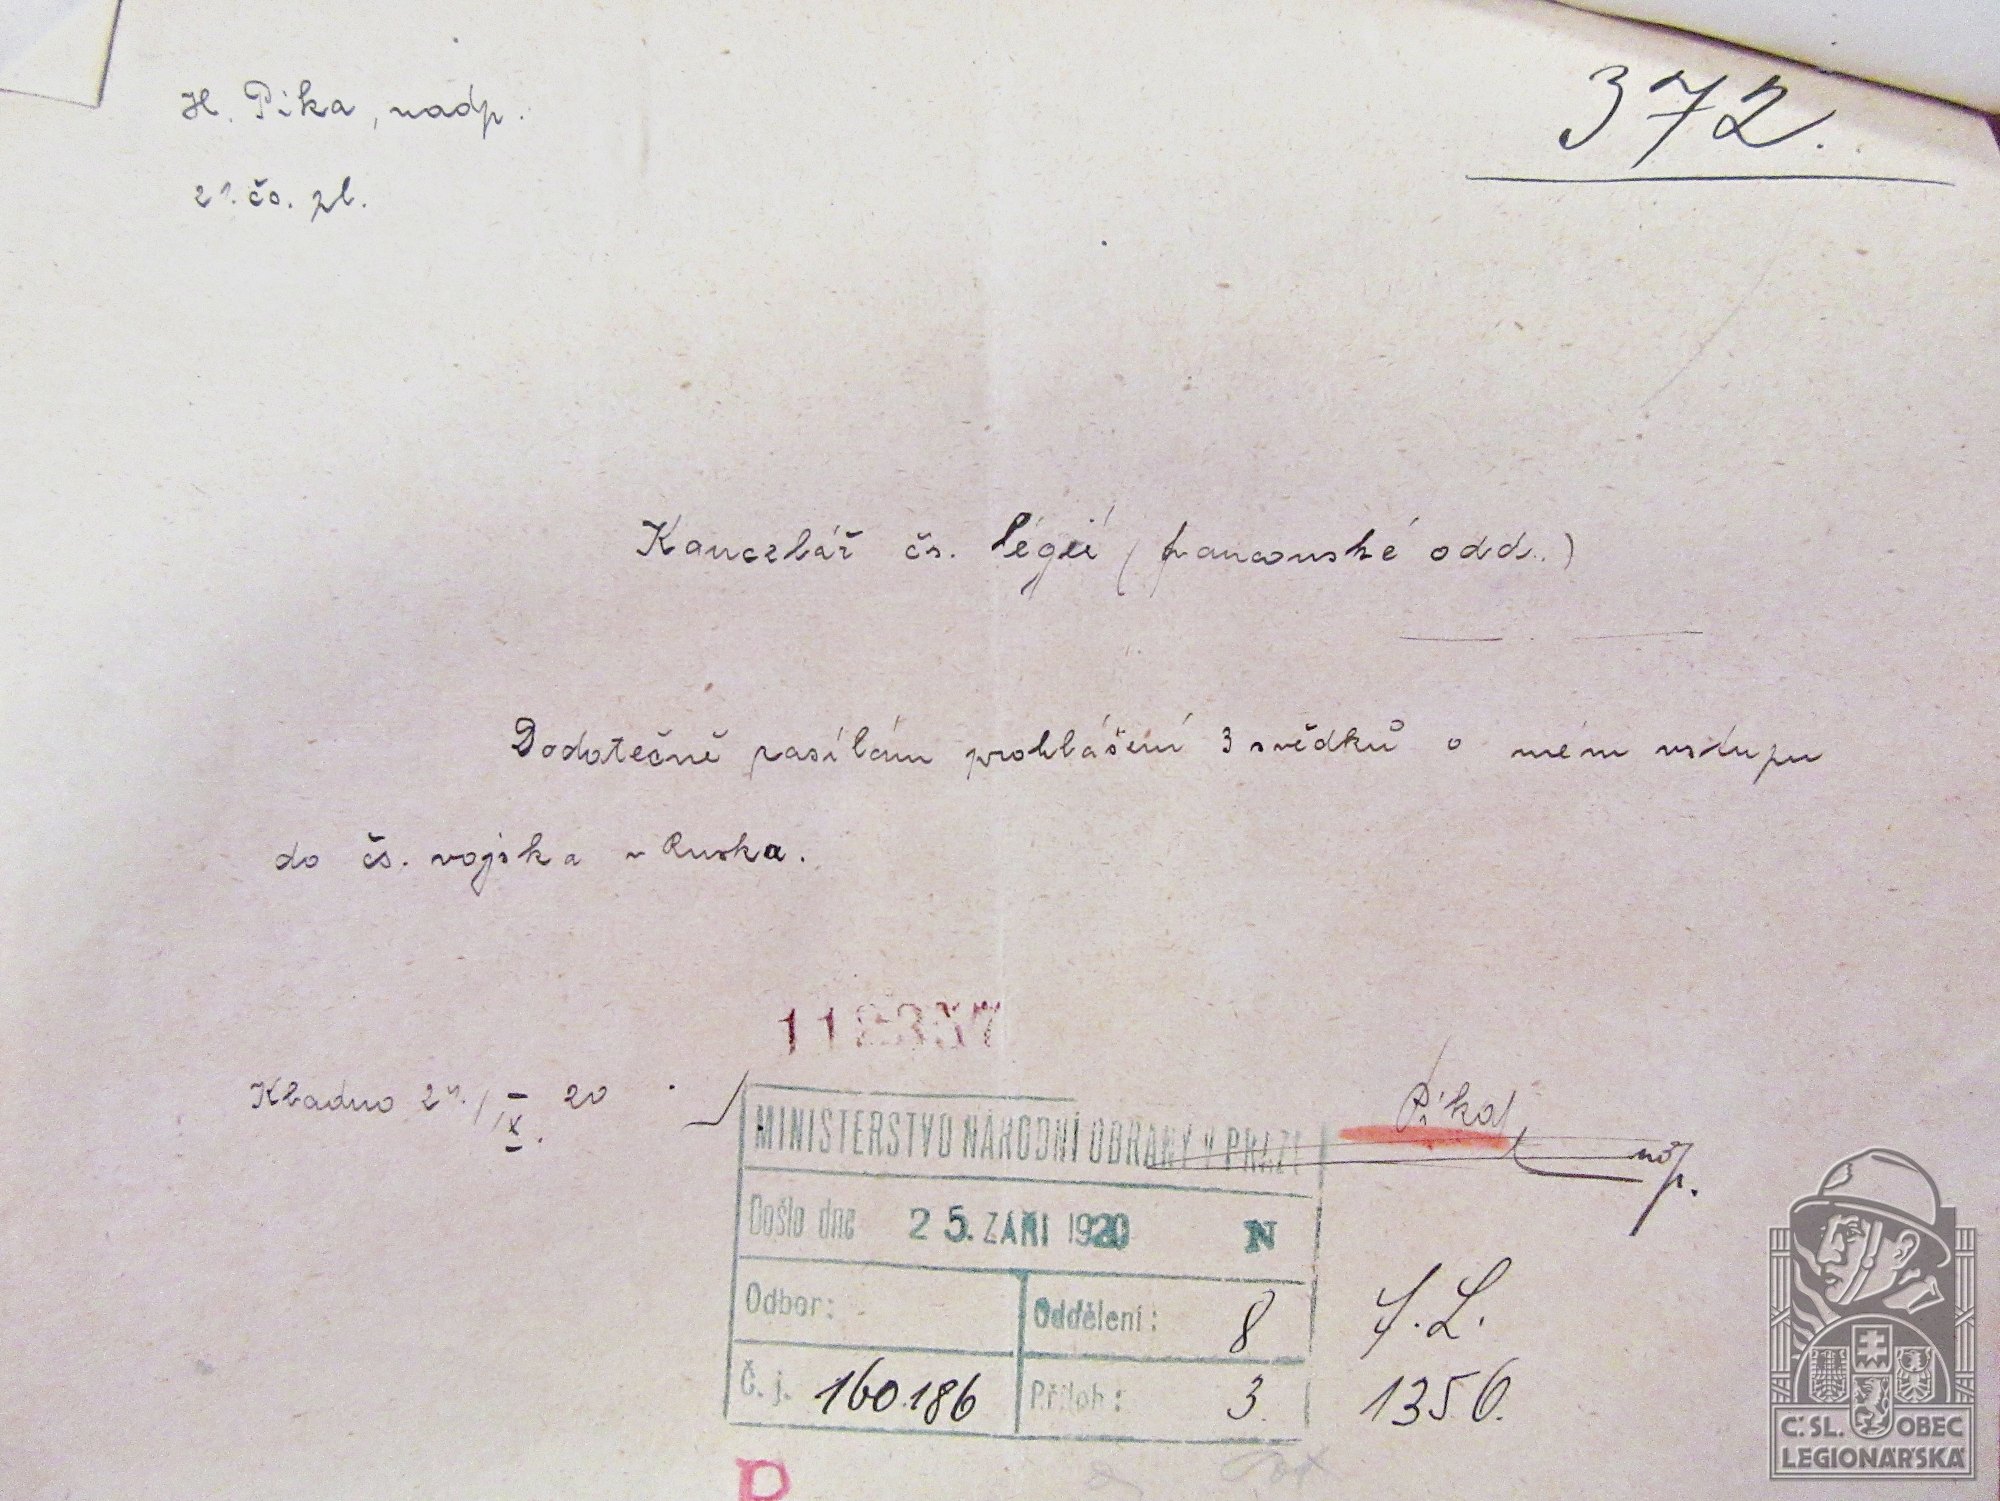 H. Pika, nadp.
372.
21. čs. pl.
Kancelář čs. légií (francouské odd.)
Dodatečně zasílám prohlášení 3 svědků o mém vstupu
do čs. vojska v Rusku.
Kladno 21./IX. 20
Pika
ndp.
MINISTERSTVO NÁRODNÍ OBRANY V PRAZE
Došlo dne 25. ZÁŘÍ 1920 N
Odbor:
Oddělení: 8
f. L.
Č. j. 160.186
Příloh: 3.
1356.
P
Č.SL. OBEC
LEGIONÁŘSKÁ